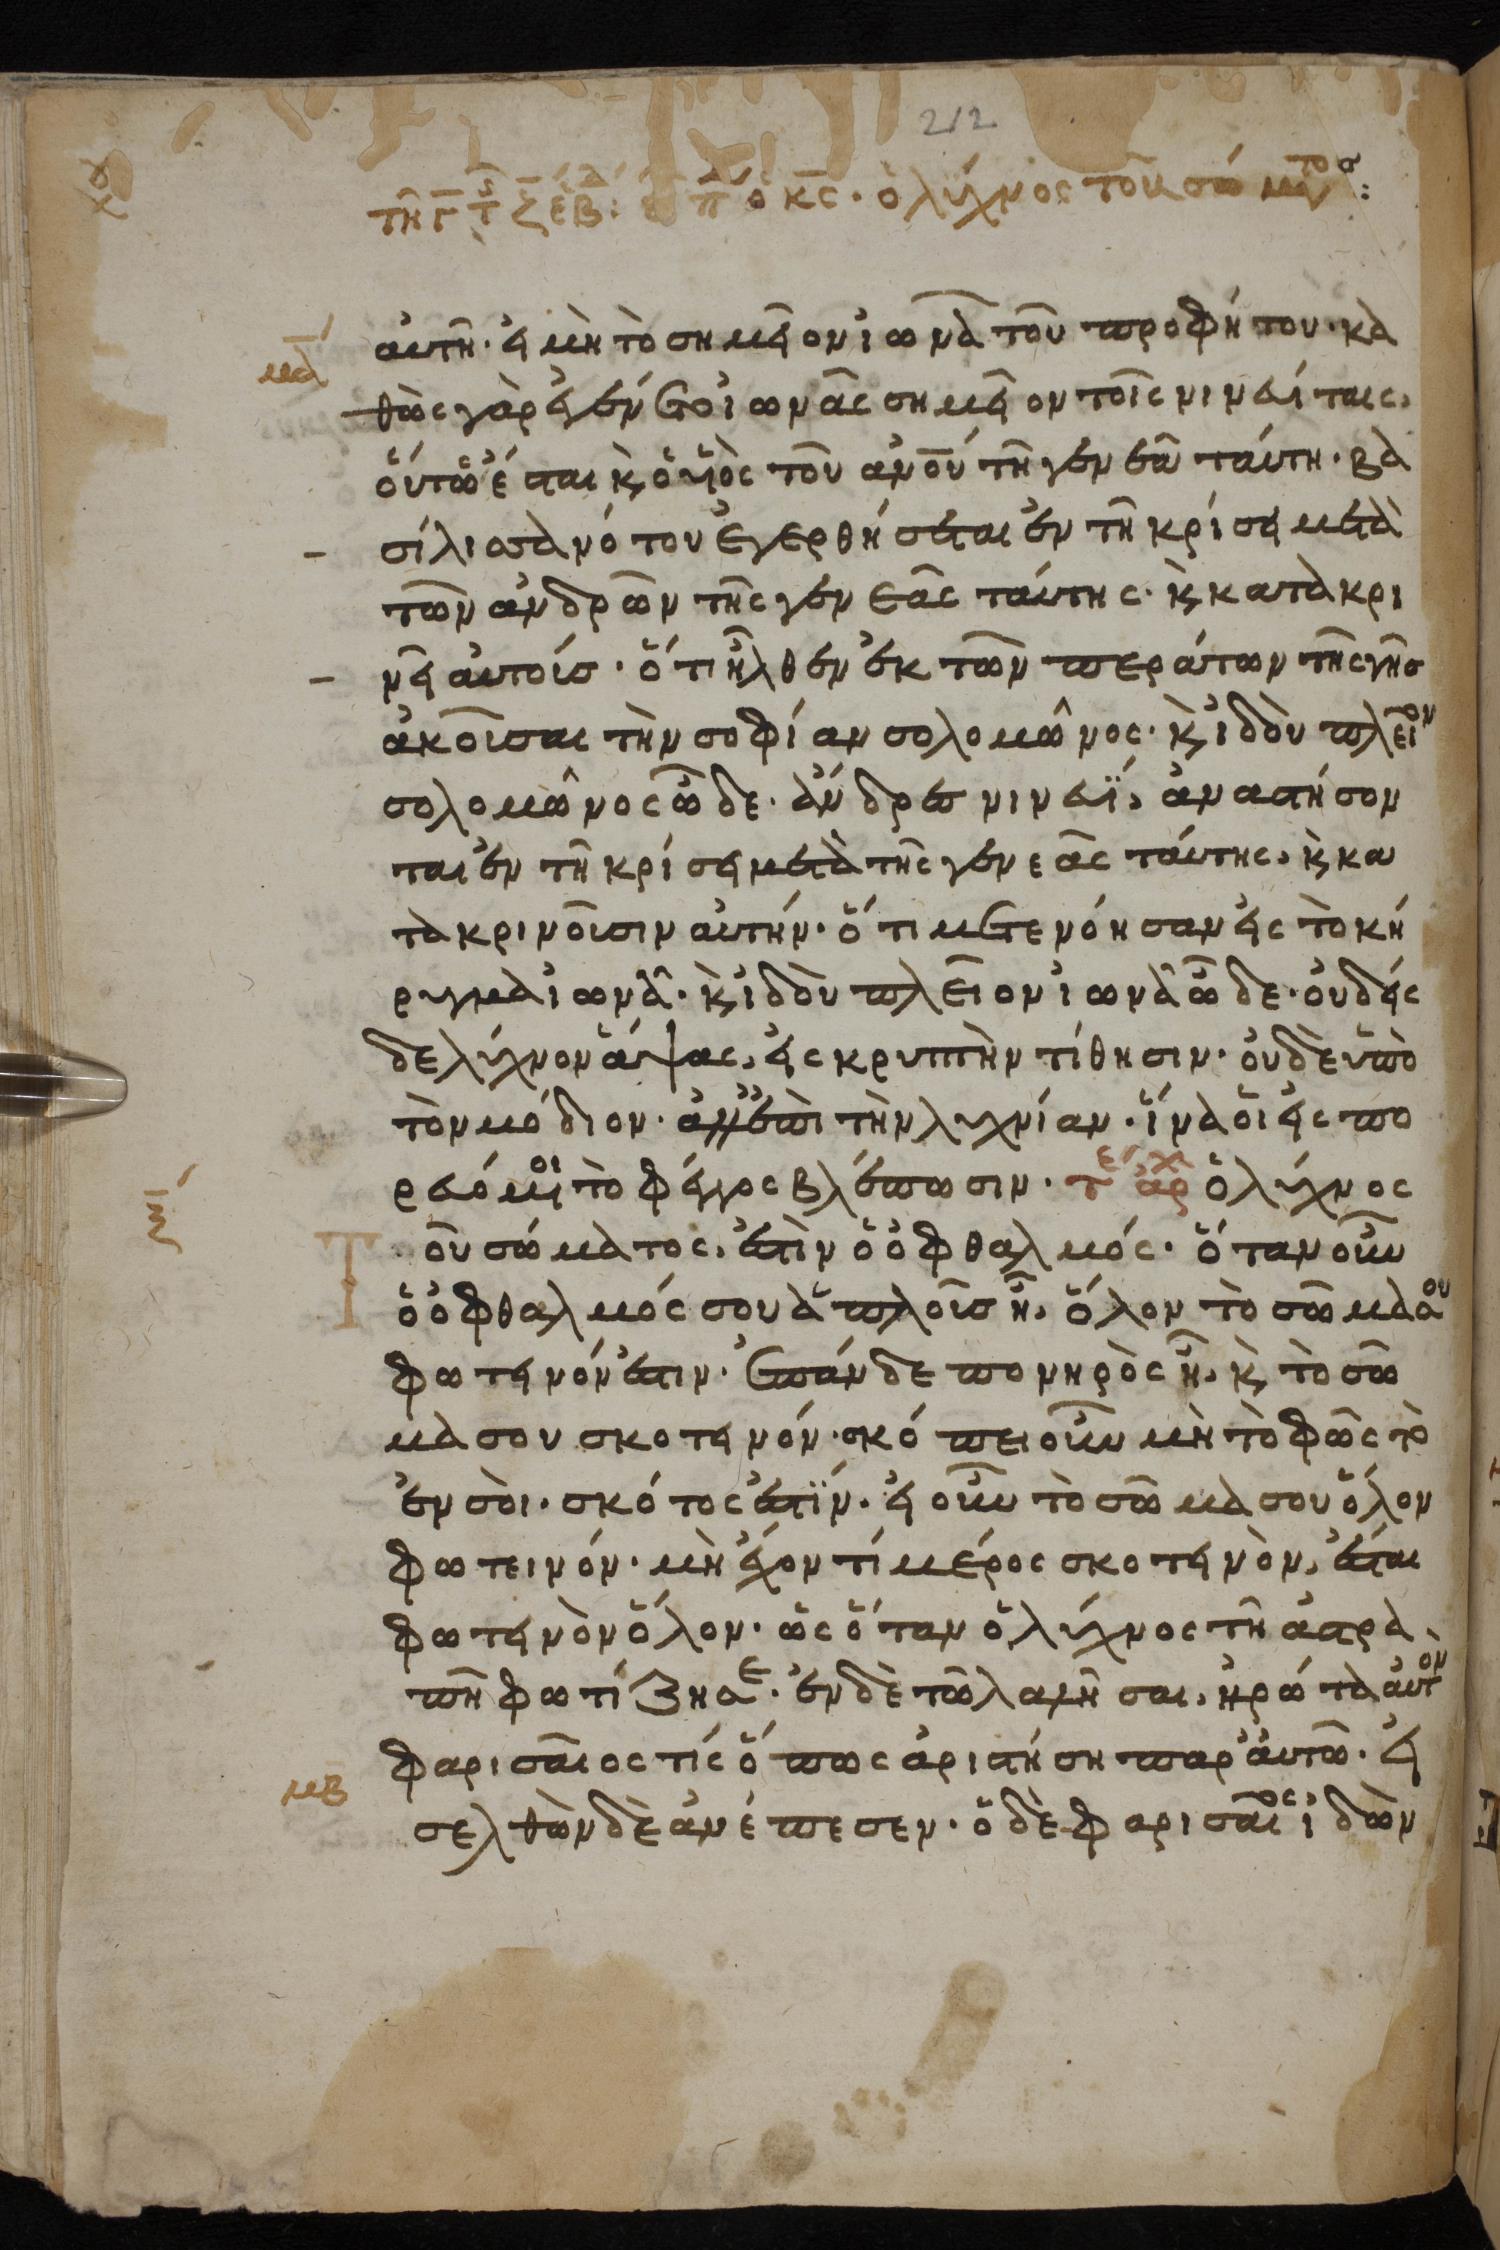 212
τῇ γ τ ζ ἑβ: ε π ὁ κς. ὁ λύχνος τοῦ σώματος:
αὐτῆ. εἰ μὴ τὸ σημεῖον ἰωνᾶ τοῦ προφήτου. κα
μα
θὼς γὰρ ἐγένετο ἰωνᾶς σημεῖον τοῖς νινευίταις,
οὕτως ἔσται κ ὁ υἱὸς τοῦ ανου τῆ γενεᾶ ταύτη. βα
σίλισσα νότου ἐγερθήσεται ἐν τῆ κρίσει μετὰ
τῶν ἀνδρῶν τῆς γενεᾶς ταύτης. κ κατακρι
νεῖ αὐτούσ. ὅτι ἦλθεν ἐκ τῶν περάτων τῆς γῆσ
ἀκοῦσαι τὴν σοφίαν σολομῶνος. κ ἰδοὺ πλεῖον
σολομῶνος ὧδε. ἄνδρες νινευϊ, ἀναστήσον
ται ἐν τῆ κρίσει μετὰ τῆς γενεᾶς ταύτης, κ κα
τακρινοῦσιν αὐτήν. ὅτι μετενόησαν εἰς τὸ κή
ρυγμα ἰωνᾶ. κ ἰδοὺ πλεῖον ἰωνᾶ ὧδε. οὐδεὶς
δε λύχνον ἅψας, εἰς κρυπτὴν τίθησιν. οὐδὲ ὑπὸ
τὸν μόδιον. ἀλλ' ἐπὶ τὴν λυχνίαν. ἵνα οἱ εἰσπο
ρευόμενοι τὸ φέγγος βλέπωσιν. τε αρχ ὁ λύχνος
Τοῦ σώματος, ἐστὶν ὁ ὀφθαλμός. ὅταν οὖν
ὁ ὀφθαλμός σου ἁπλοῦς ἦ, ὅλον τὸ σῶμα σου
φωτεινόν ἐστιν. ἐπὰν δε πονηρὸς ἦ, κ τὸ σῶ
μα σου σκοτεινόν. σκόπει οὖν μὴ τὸ φῶς τὸ
ἐν σοὶ. σκότος ἐστϊν. εἰ οὖν τὸ σῶμα σου ὅλον
φωτεινόν. μὴ ἔχον τί μέρος σκοτεινὸν, ἔσται
φωτεινὸν ὅλον. ὡς ὅταν ὁ λύχνος τῆ ἀστρα
πῆ φωτίζη σε. ἐν δὲ τῶ λαλῆσαι, ἠρώτα αὐτὸν
φαρισαῖος τίς ὅπως ἀριστήση παρ' αὐτῶ. εἰ
μβ
σελθὼν δὲ ἀνέπεσεν. ὁ δὲ φαρισαῖος ἰδὼν